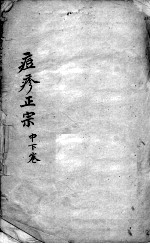 痘疹正宗
中下卷